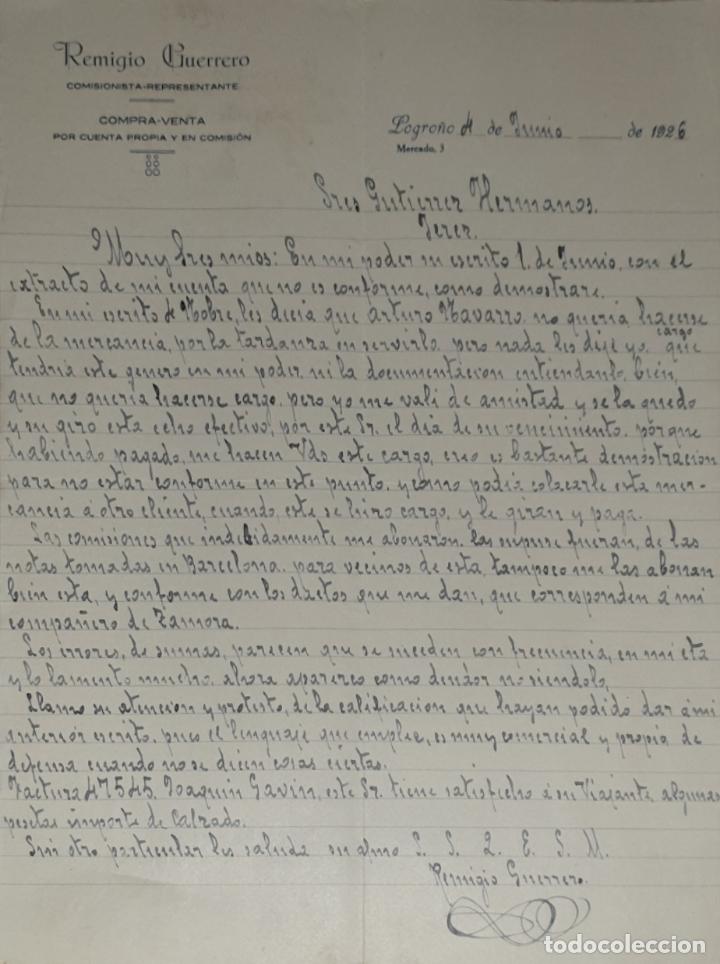 Remigio Guerrero
COMISIONISTA-REPRESENTANTE
COMPRA-VENTA
POR CUENTA PROPIA Y EN COMISIÓN
Logroño 4 de Junio de 1926
Mercado, 3
Sres Gutierrez Hermanos.
Jerez.
Muy Sres mios: En mi poder su escrito 1. de Junio, con el
extracto de mi cuenta que no es conforme, como demostrare.
En mi escrito de Nobre, les decia que Arturo Navarro. no queria hacerse
cargo
de la mercancia, por la tardanza en servirlo. pero nada les dije yo, que
tendria este genero en mi poder. ni la documentacion entiendanlo, bien,
que no queria hacerse cargo. pero yo me vali de amistad y se la quedo
y su giro esta echo efectivo, por este Sr. el dia de su vencimiento. porque
habiendo pagado, me hacen Vds este cargo, creo es bastante demostracion
para no estar conforme en este punto. y como podia colocarle esta mer-
cancia á otro cliente, cuando, este se hizo cargo, y le giran y paga.
Las comisiones que indebidamente me abonaron. las supuse fueran, de las
notas tomadas en Barcelona. para vecinos de esta, tampoco me las abonan
bien esta, y conforme con los datos que me dan, que corresponden á mi
compañero de Zamora.
Los errores, de sumas, parecen que se suceden con frecuencia, en mi cta
y lo lamento mucho. ahora aparezco como deudor no siendolo,
Llamo su atencion y protesto, de la calificacion que hayan podido dár á mi
anterior escrito. pues el lenguaje que emplee, es muy comercial y propia de
defensa cuando no se dicen cosas ciertas.
Factura 47545. Joaquin Gavin, este Sr. tiene satisfecho á su Viajante algunas
pesetas importe de Calzado.
Sin otro particular les saluda su afmo S. S. Q. E. S. M.
Remigio Guerrero.
todocoleccion